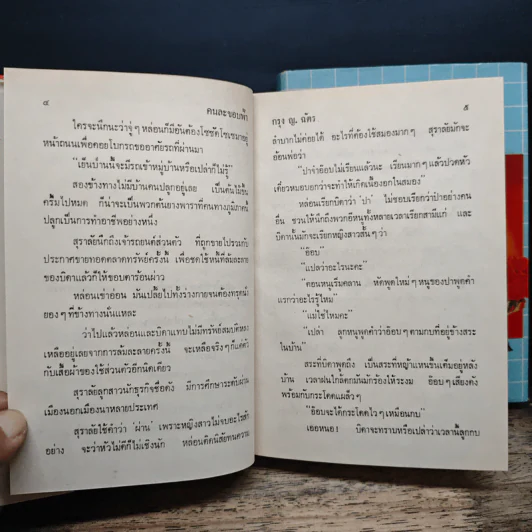 ๔
คนละขอบฟ้า
ใครจะนึกนะว่าจู่ ๆ หล่อนก็มีอันต้องโซซัดโซเซมาอยู่
หน้าถนนเพื่อคอยโบกรถขออาศัยรถที่ผ่านมา
"เย็นป่านนี้จะมีรถเข้าหมู่บ้านหรือเปล่าก็ไม่รู้"
สองข้างทางไม่มีบ้านคนปลูกอยู่เลย เป็นต้นไม้ขึ้น
ครึ้มไปหมด ก็น่าจะเป็นพวกต้นยางพาราที่คนทางภูมิภาคนี้
ปลูกเป็นการทำอาชีพอย่างหนึ่ง
สุราลัยนึกถึงเจ้ารถยนต์ส่วนตัว ที่ถูกขายไปรวมกับ
ประกาศขายทอดตลาดทรัพย์ครั้งนั้น เพื่อชดใช้หนี้ที่ล้มละลาย
ของบิดาแล้วก็ให้ขอบตาร้อนผ่าว
หล่อนเข่าอ่อน มันเปลี้ยไปทั้งร่างกายจนต้องทรุดนั่ง
อยู่ ๆ ที่ข้างทางนั่นแหละ
ว่าไปแล้วหล่อนและบิดาแทบไม่มีทรัพย์สมบัติหลง
เหลืออยู่เลยจากการล้มละลายครั้งนี้ จะเหลือจริง ๆ ก็แค่ตัว
กับเสื้อผ้าของใช้ส่วนตัวอีกนิดเดียว
สุราลัยลูกสาวนักธุรกิจชื่อดัง มีการศึกษาระดับผ่าน
เมืองนอกเมืองนาหลายประเทศ
สุราลัยใช้คำว่า 'ผ่าน' เพราะหญิงสาวไม่จบอะไรสัก
อย่าง จะว่าหัวไม่ดีก็ไม่เชิงนัก หล่อนติดนิสัยทนความ
กรุง ญ. ฉัตร
๕
ลำบากไม่ค่อยได้ อะไรที่ต้องใช้สมองมาก ๆ สุราลัยมักจะ
อ้อนพ่อว่า
"ปาจ๋าอ๊อบไม่เรียนแล้วนะ เรียนมาก ๆ แล้วปวดหัว
เดี๋ยวหมอบอกว่าจะทำให้เกิดเนื้องอกในสมอง"
หล่อนเรียกบิดาว่า 'ปา' ไม่ชอบเรียกว่าป๋าอย่างคน
อื่น ชวนให้นึกถึงพวกอีหนูทั้งหลายเวลาเรียกสามีแก่ และ
บิดานั้นมักจะเรียกหญิงสาวสั้น ๆ ว่า
"อ๊อบ"
"แปลว่าอะไรนะคะ"
"ตอนหนูเริ่มคลาน หัดพูดใหม่ ๆ หนูของปาพูดคำ
แรกว่าอะไรรู้ไหม"
"แม่ใช่ไหมคะ"
"เปล่า ลูกหนูพูดคำว่าอ๊อบ ๆ ตามกบที่อยู่ข้างสระ
ในบ้าน"
สระที่บิดาพูดถึง เป็นสระที่หญ้าแหนขึ้นเต็มอยู่หลัง
บ้าน เวลาฝนใกล้ตกมันมักร้องให้ระงม อ๊อบ ๆ เสียงดัง
พร้อมกับกระโดดแผล็ว ๆ
"อ๊อบจะโค้กระโดดไว ๆ เหมือนกบ"
เออหนอ! บิดาจะทราบหรือเปล่าว่าเวลานี้ลูกกบ